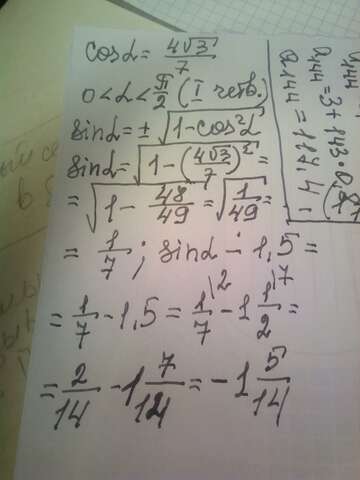 cosα = 4√3/7
0 < α < π/2 (I четв.)
sinα = ± √(1 - cos²α)
sinα = √(1 - (4√3/7)²) =
= √(1 - 48/49) = √(1/49) =
= 1/7 ; sinα - 1,5 =
= 1/7 - 1,5 = 1/7 \2 - 1 1/2 \7 =
= 2/14 - 1 7/14 = -1 5/14
a144
a144 = 3 + 143 ·
a144 = 117,4